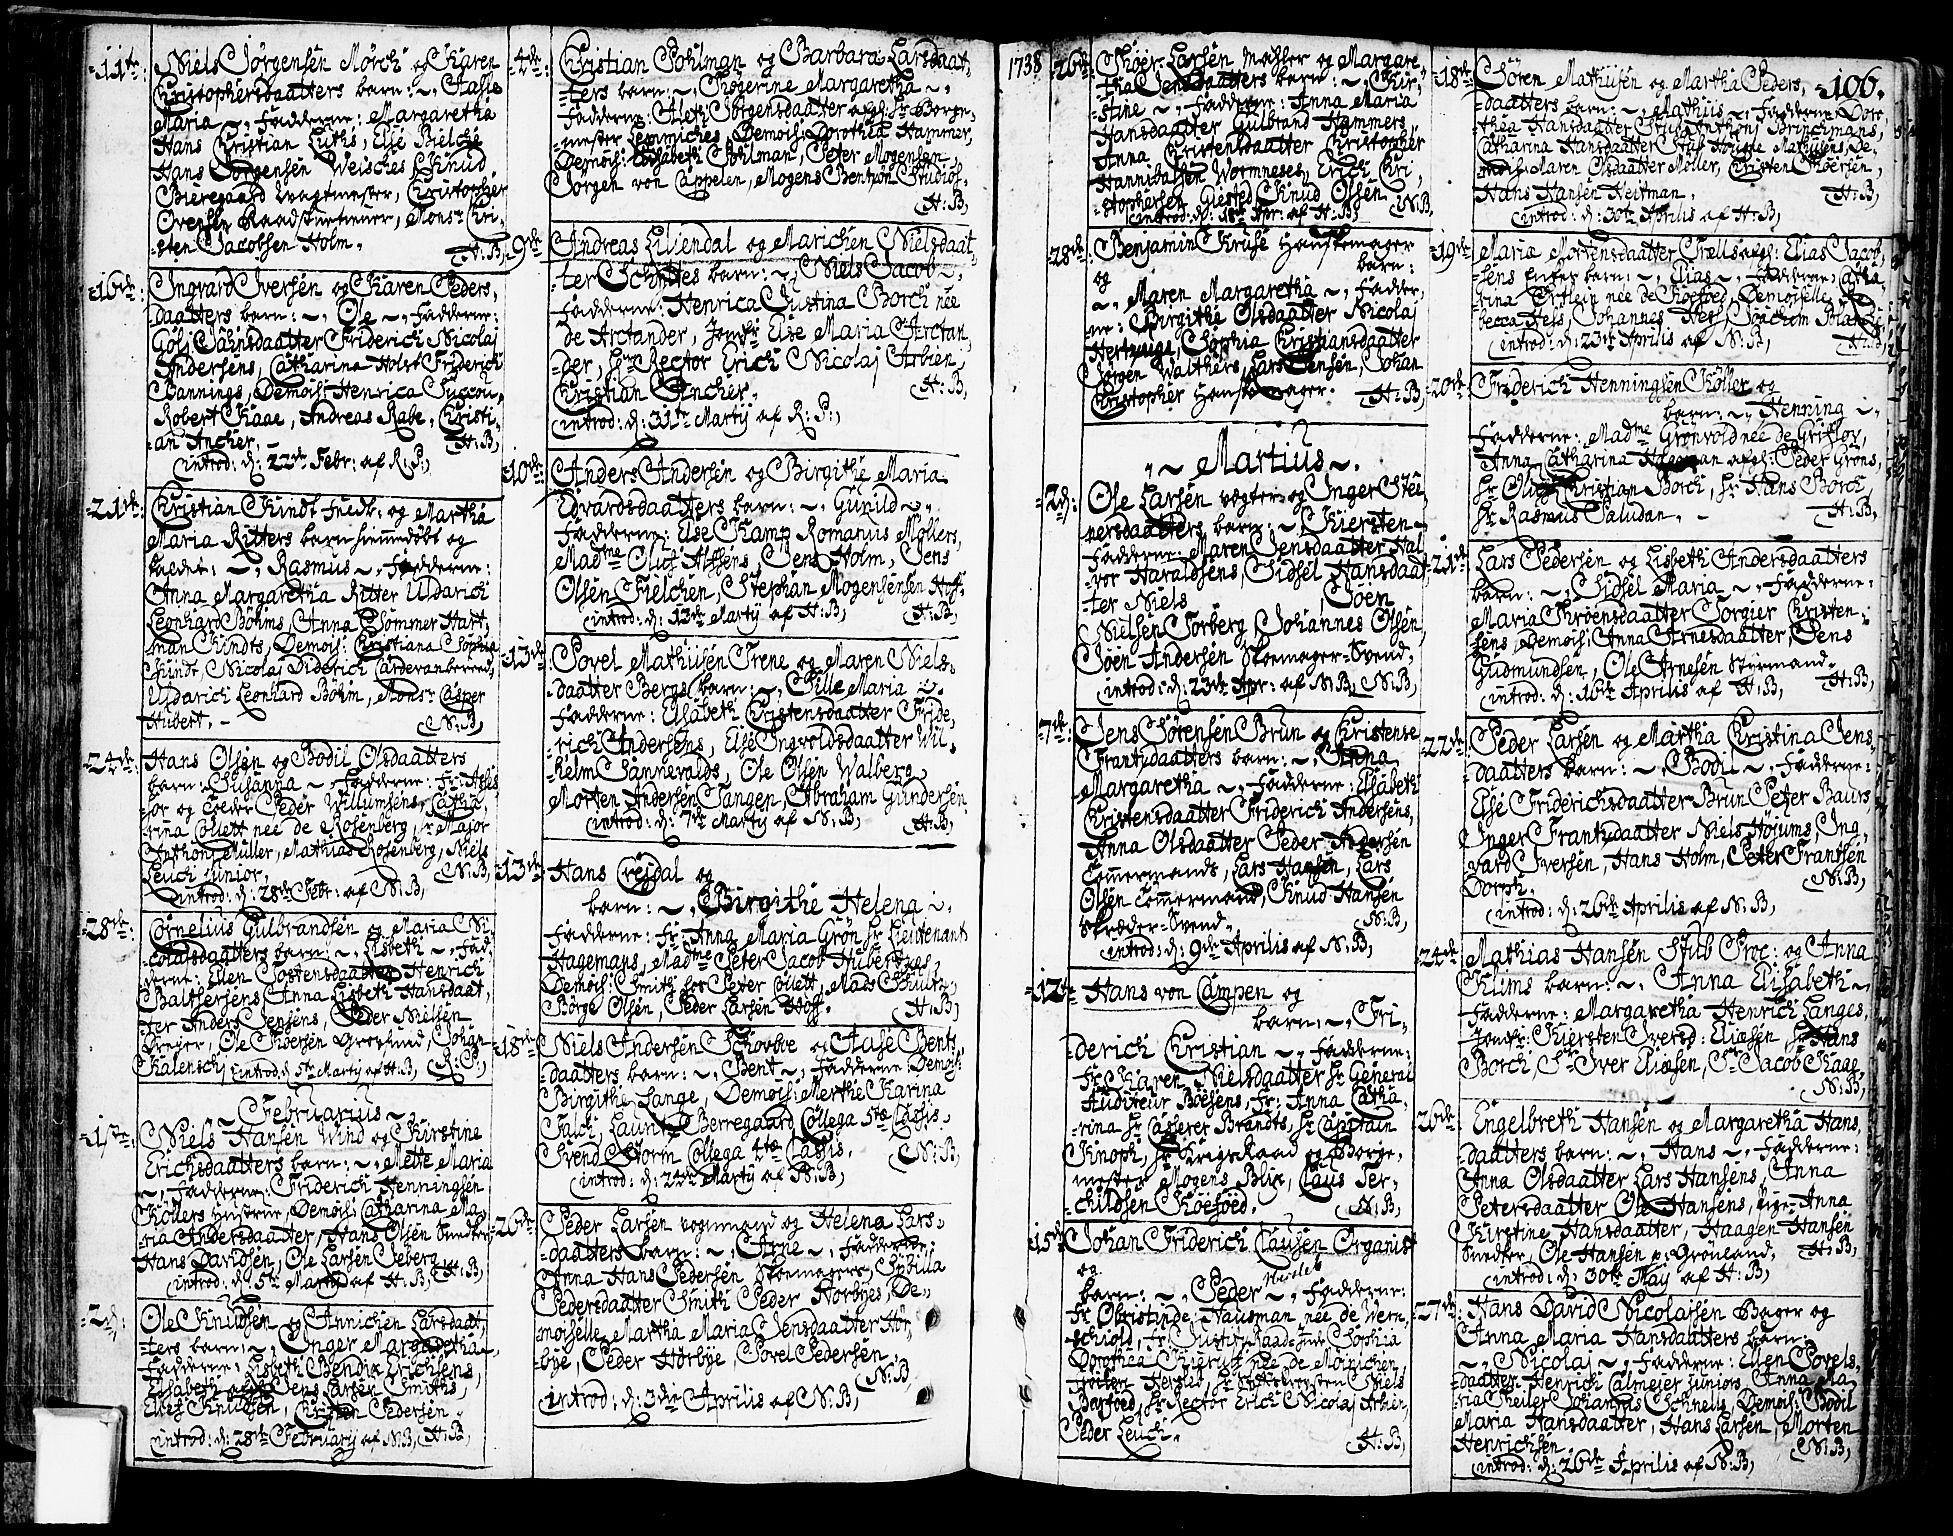 11te
Niels Jörgensen Mörch og Karen
Christophersdaatters barn: ~, Aasse
Maria ~, Fadderne: Margaretha
Hans Christian Luths, Else Bielche
Hans Jörgensen Weisches, Knud
Bieregaard Vagtmester, Christopher
Oversen Raadstuetiener, Monsr Kri-
sten Jacobsen Holm.
H:B,
16de
Ingvard Iversen og Karen Peders,
daatters barn: ~, Ole ~, Fadderne:
Friderich Nicolaj
Andersens, Catharina Holst Friderich
Bannings, Demois: Henrica Succou,
Robert Kaae, Andreas Rabe, Christi-
an Ancher. ~
H:B,
introd: d: 22de Febr: af R:P,
21de
Christian Kindt og Martha
Maria Ritters barn hiemmedöbt og
~, Rasmus ~, Fadderne:
Anna Margaretha Ritter Uldarich
Leonhard Böhms, Anna Sommer Hart,
man Kindts, Demois: Christiana Sophia
Kindt, Nicolaj Diderich
Uldarich Leonhard Böhm, Monsr Casper
Hubert. ~
N:B,
24de
Hans Olsen og Bodil Olsdaatters
barn: Susanna ~, Fadderne:
Peder Willumsens, Catha,
rina Collett née de Rosenberg, Hr Major
Anthoni Müller, Mathias Rosenberg, Niels
Leuch junior,
N:B,
introd: d: 28de Febr: af N:B,
28de
Cornelius Gulbrandsen og Maria Ni-
colaisdaatters barn: ~, Lisbeth ~, Fad,
derne: Ellen Tostensdaatter Henrich
Balthersens, Anna Lisbeth Hansdaat,
ter Anders Jensens, Peder Nielsen
Dreyer, Ole Thoersen Grefsrud, Johan
Kalensch,
introd: d: 5te Martij af H:B,
R:P,
~ Februarius ~,
1ste
Niels Hansen Wind og Kirstine
Erichsdaatters barn: ~, Mette Maria
~, Fadderne: Friderich Henningsen
Köllers hustrue, Demois: Catharina Ma-
ria Andersdaatter, Hans Olsen
Hans Davidsen, Ole Larsen Seberg
introd: d: 5te Martij af H:B,
H:B,
2d,
Ole Knudsen og Annichen Larsdaat,
ters barn: ~, Inger Margaretha ~,
Fadderne: Lisbeth Erichsens,
Elisabeth Jens Larsen Smiths,
Knudsen, Christen Pedersen.
introd: d: 28de Februarij af N:B,
H:B,
4de
Christian Pohlman og Barbara Larsdaat,
ters barn: ~, Thögerine Margaretha ~,
Fadderne: Aleth Jörgensdaatter
Lemmiches, Demois: Dorothea Hammer,
Demois: Elisabeth Pohlman, Peter Mogensen,
Jörgen von Cappelen, Mogens Bentzön Studios.
H:B,
9de
Andreas Liliendal og Marichen Nielsdaat,
ter Schmites barn: ~, Niels Jacob ~,
Fadderne: Henrica Justina Borch née
de Arctander, Jomfr: Else Maria Arctan,
der, Hr Rector Erich Nicolaj Arbien,
Christian Ancher.
H:B,
introd: d: 31te Martij af R:P,
10de
Anders Andersen og Birgithe Maria
Edvardsdaatters barn: ~, Gunild ~,
Fadderne: Else Kamp Romanus Möllers,
Madme Oluf Alfsens, Jens Holm, Jens
Olsen Fielchen, Stephan Mogensensen
introd: d: 13de Martij af H:B,
H:B,
13de
Povel Mathiisen Trene og Maren Niels-
daatter Bergs barn: ~, Sille Maria ~,
Fadderne: Elisabeth Christensdaatter Fride,
rich Andersens, Else Ingvoldsdaatter Wil,
helm Sannevalds, Ole Olsen Walberg,
Morten Andersen Tangen, Abraham Gundersen
introd: d: 7de Martij af N:B,
H:B,
13de
Hans Crejdal og
barn: ~, Birgithe Helena ~,
Fadderne: Fr: Anna Maria Grön Hr Lieutenant
Hagemans, Madme Peter Jacob Huberts,
Demois: Smith hos Peter Collett, Mads
Börge Olsen, Peder Larsen Hoff.
H:B,
18de
Niels Andersen Schovbye og Aase Bents
daatters barn: ~, Bent ~, Fadderne: Demois:
Birgithe Lange, Demois: Merthe Karina
Falch, Berregaard Collega 5tæ Classis,
Svend Storm Collega 4tæ Classis.
N:B,
introd: d: 22de Martij af N:B,
26de
Peder Larsen vognmand og Helena Lars-
daatters barn: ~, Arne ~, Fadderne:
Anna Hans Pedersen Skoemagers, Sybilla
Pedersdaatter Smith Peder Horbyes, De-
moiselle Martha Maria Jensdaatter Hör,
bye, Peder Horbye, Povel Pedersen.
N:B,
introd: d: 3die Aprilis af N:B,
1738
26de
Thoer Larsen Møller og Margare-
tha Jensdaatters barn: ~, Kir,
stine ~, Fadderne: Anna Maria
Hansdaatter Gulbrand Hammers,
Anna Christensdaatter Christopher
Hannibalsen Wormneses, Erich Chri,
stophersen Giested, Knud Olsen
introd: d: 18de Apr: af H:B,
N:B,
28de
Benjamin Kruse
og
barn:
~, Maren Margaretha ~, Fadder,
ne: Birgithe Olsdaatter Nicolaj
Hertzugs, Sophia Christiansdaatter
Jörgen Walthers, Lars Jensen, Johan
Christopher
H:B,
~ Martius ~.
2d:
Ole Larsen vægter og Inger
persdaatters barn: ~, Kiersten ~
Fadderne: Maren Jensdaatter Hal-
vor Haraldsens, Sidsel Hansdaat-
ter Niels Joen
Nielsen Torberg, Johannes Olsen,
Joen Andersen Skoemager-Svend.
introd: d: 23de Apr: af N:B,
N:B,
7de
Jens Sörensen Brun og Christense
Frantzdaatters barn: ~, Anna
Margaretha ~, Fadderne: Elisabeth
Christensdaatter Friderich Andersens,
Anna Olsdaatter Peder Andersen
Tömmermands, Lars Hansen, Lars
Olsen Tömmermand, Knud Hansen
Skræder-Svend.
N:B,
introd: d: 9de Aprilis af N:B,
12te
Hans von Campen og
barn: ~, Fri-
derich Christian ~, Fadderne:
Fr: Karen Nielsdaatter Hr General
Auditeur Boesens, Fr: Anna Catha-
rina Hr Casserer Brandts, Hr Capitain
Knoph, Hr Krigs Raad og Borge,
mester Mogens Blix, Claus Ter-
childsen Koefoed.
N:B,
15de
Johan Friderich Clausen Organist
og
barn: ~, Peder ~, Fadderne:
Fr: Nausman née de Wern,
schiold, Fr: Sophia
Dorothea née de Moinichen,
Niels
Barfoed, Hr Rector Erich Nicolaj Arbien,
Peder Leuch.
H:B,
106.
18de
Sören Mathiisen og Martha Peders,
daatters barn: ~, Mathiis ~, Fadderne: Doro-
thea Hansdaatter Anthoni Brinchmans,
Catharina Hansdaatter Mathiisens, De,
mois: Maren Olsdaatter Möller, Christen Thoersen,
Hans Hansen Heitman.
H:B,
introd: d: 30te Aprilis af H:B,
19de
Maria Mortensdaatter Elias Jacob,
sens Enkes barn: ~, Elias ~, Fadderne: Catha,
rina Örtlein née de Koefoed, Demoiselle Re-
becca Hess, Johannes Hess, Joachim
introd: d: 23de Aprilis af N:B,
H:B,
20de
Friderich Henningsen Köller og
barn: ~, Henning ~,
Fadderne: Madme Grönvold née de Griffou,
Anna Catharina Hageman Peder Gröns,
Hr Oluf Christian Borch, Hr Hans Borch,
Hr Rasmus Paludan. ~
H:B,
21de
Lars Pedersen og Lisbeth Andersdaatters
barn: ~, Sidsel Maria ~, Fadderne:
Maria Throensdaatter Torgier Christen-
sens, Demois: Anna Arnesdaatter, Jens
Gudmundsen, Ole Arnesen Styrmand.
introd: d: 16de Aprilis af H:B,
H:B,
22de
Peder Larsen og Martha Christina Jens,
daatters barn: ~, Bodil ~, Fadderne:
Else Friderichsdaatter Brun Peter Baurs
Inger Frantzdaatter Niels Höjums, Ing,
vard Iversen, Hans Holm, Peter Franssen
Dorph.
N:B,
introd: d: 26de Aprilis af N:B,
24de
Mathias Hansen Stub Proc: og Anna
Klims barn: ~, Anna Elisabeth ~
Fadderne: Margaretha Henrich Langes,
Jomfr: Kiersten Iversd: Eliæsen, Hr Hans
Borch, Sr Iver Eliæsen, Sr Jacob Kaae,
N:B,
26de
Engelbreth Hansen og Margaretha Hans,
daatters barn: ~, Hans ~, Fadderne:
Anna Olsdaatter Lars Hansens, Anna
Petersdaatter Ole Hansens, Pige: Anna
Kirstine Hansdaatter, Haagen Hansen
Snedker, Ole Hansen Grönland.
H:B,
introd: d: 30te Maij af H:B,
27de
Hans David Nicolajsen Bager og
Anna Maria Hansdaatters barn:
~, Nicolaj ~, Fadderne: Ellen Povels,
daatter Henrich Calmejer juniors, Anna Ma-
ria Theiler Johannes Schnells, Demois: Bodil
Maria Hansdaatter, Hans Larsen, Morten
Henrichsen.
N:B,
introd: d: 26de Aprilis af N:B,